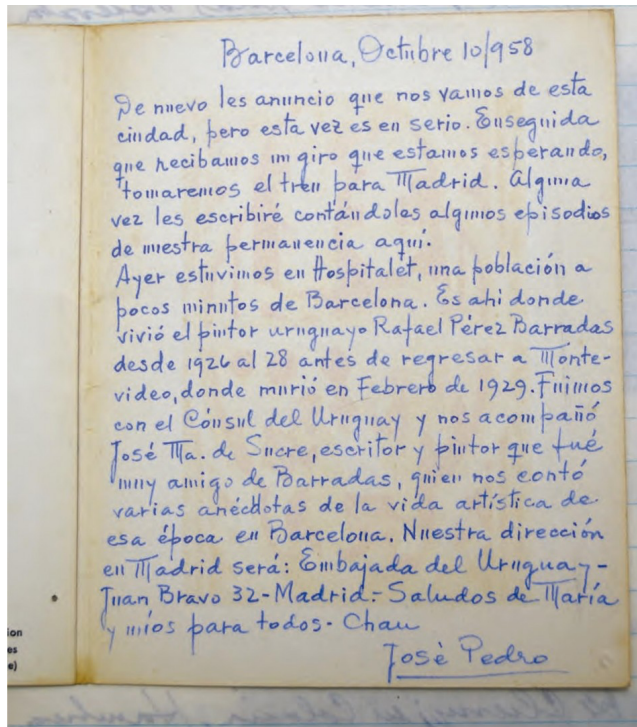 Barcelona, Octubre 10/958
De nuevo les anuncio que nos vamos de esta
ciudad, pero esta vez es en serio. Enseguida
que recibamos un giro que estamos esperando,
tomaremos el tren para Madrid. Alguna
vez les escribiré contándoles algunos episodios
de nuestra permanencia aquí.
Ayer estuvimos en Hospitalet, una población a
pocos minutos de Barcelona. Es ahi donde
vivió el pintor uruguayo Rafael Pérez Barradas
desde 1926 al 28 antes de regresar a Monte-
video, donde murió en Febrero de 1929. Fuimos
con el Cónsul del Uruguay y nos acompañó
José Ma. de Sucre, escritor y pintor que fué
muy amigo de Barradas, quien nos contó
varias anécdotas de la vida artística de
esa época en Barcelona. Nuestra dirección
en Madrid será: Embajada del Uruguay-
Juan Bravo 32-Madrid.- Saludos de María
y míos para todos- Chau
José Pedro
ion
es
e)